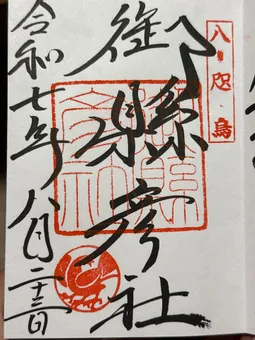 八咫烏
御縣彦社
令和七年八月二十三日